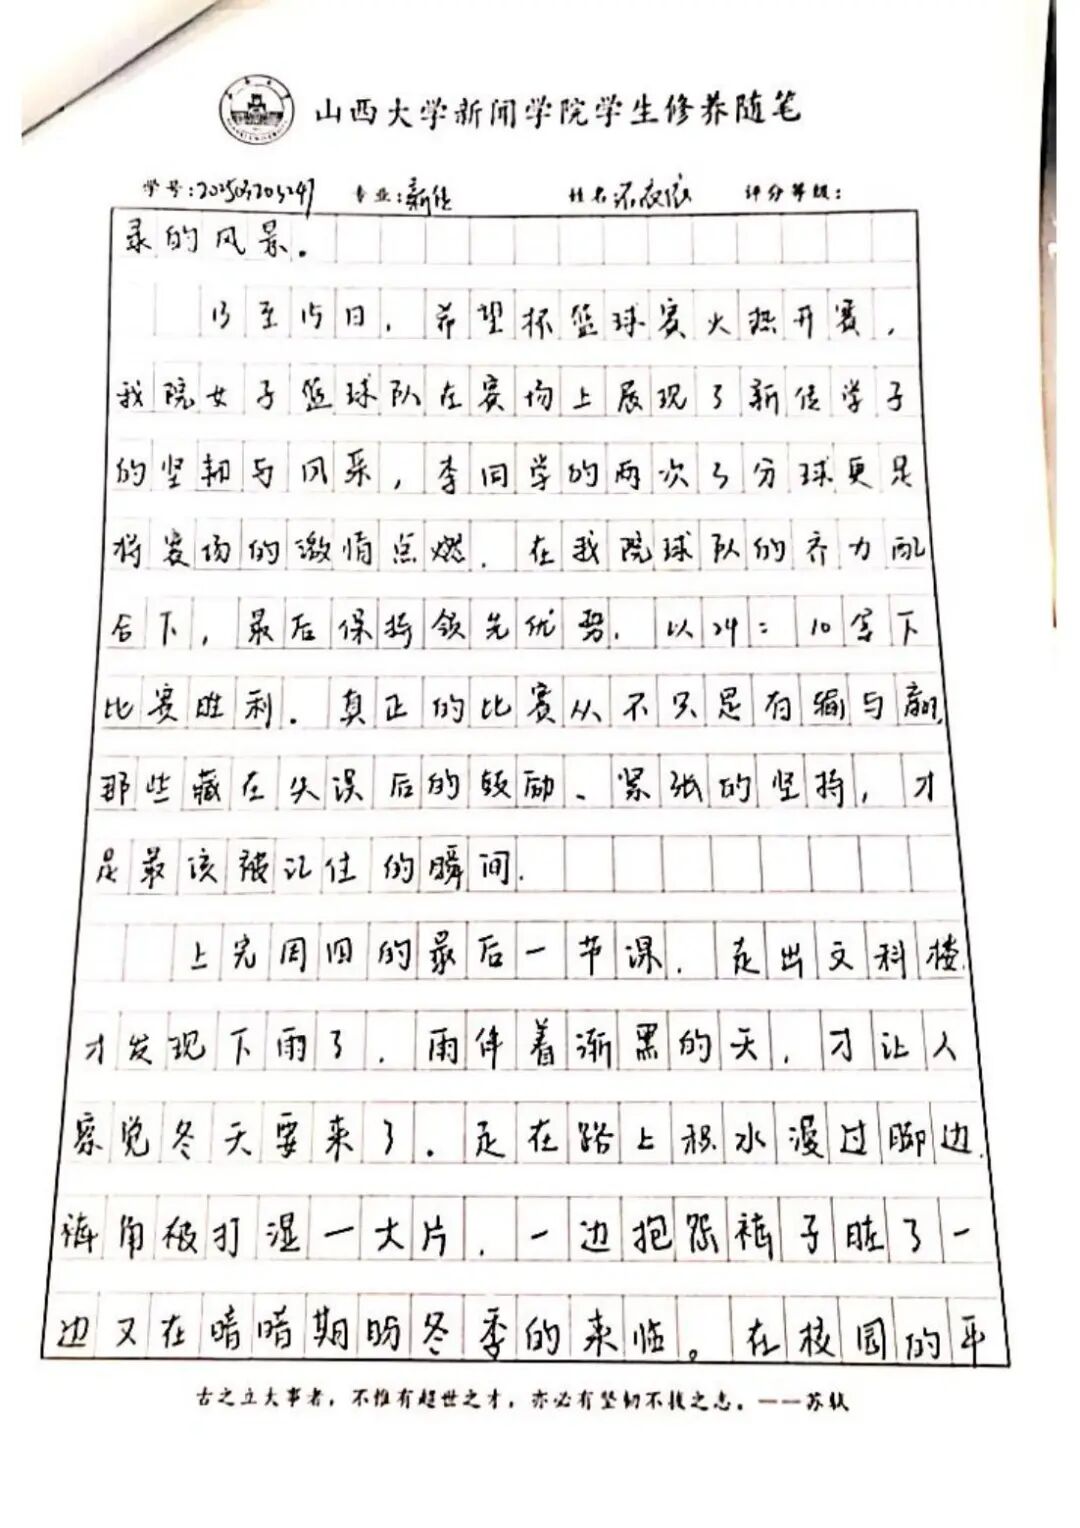 山西大学新闻学院学生修养随笔
学号: 专业:新传 姓名 评分等级:
录的风景。
13至15日，希望杯篮球赛火热开赛，
我院女子篮球队在赛场上展现了新传学子
的坚韧与风采，李同学的两次3分球更是
将赛场的激情点燃。在我院球队的齐力配
合下，最后保持领先优势，以24：10拿下
比赛胜利。真正的比赛从不只是有输与赢，
那些藏在失误后的鼓励、紧张的坚持，才
是最该被记住的瞬间。
上完周四的最后一节课，走出文科楼，
才发现下雨了，雨伴着渐黑的天，才让人
察觉冬天要来了。走在路上积水漫过脚边，
裤角被打湿一大片，一边抱怨裤子脏了一
边又在暗暗期盼冬季的来临。在校园的平
古之立大事者，不惟有超世之才，亦必有坚韧不拔之志。——苏轼